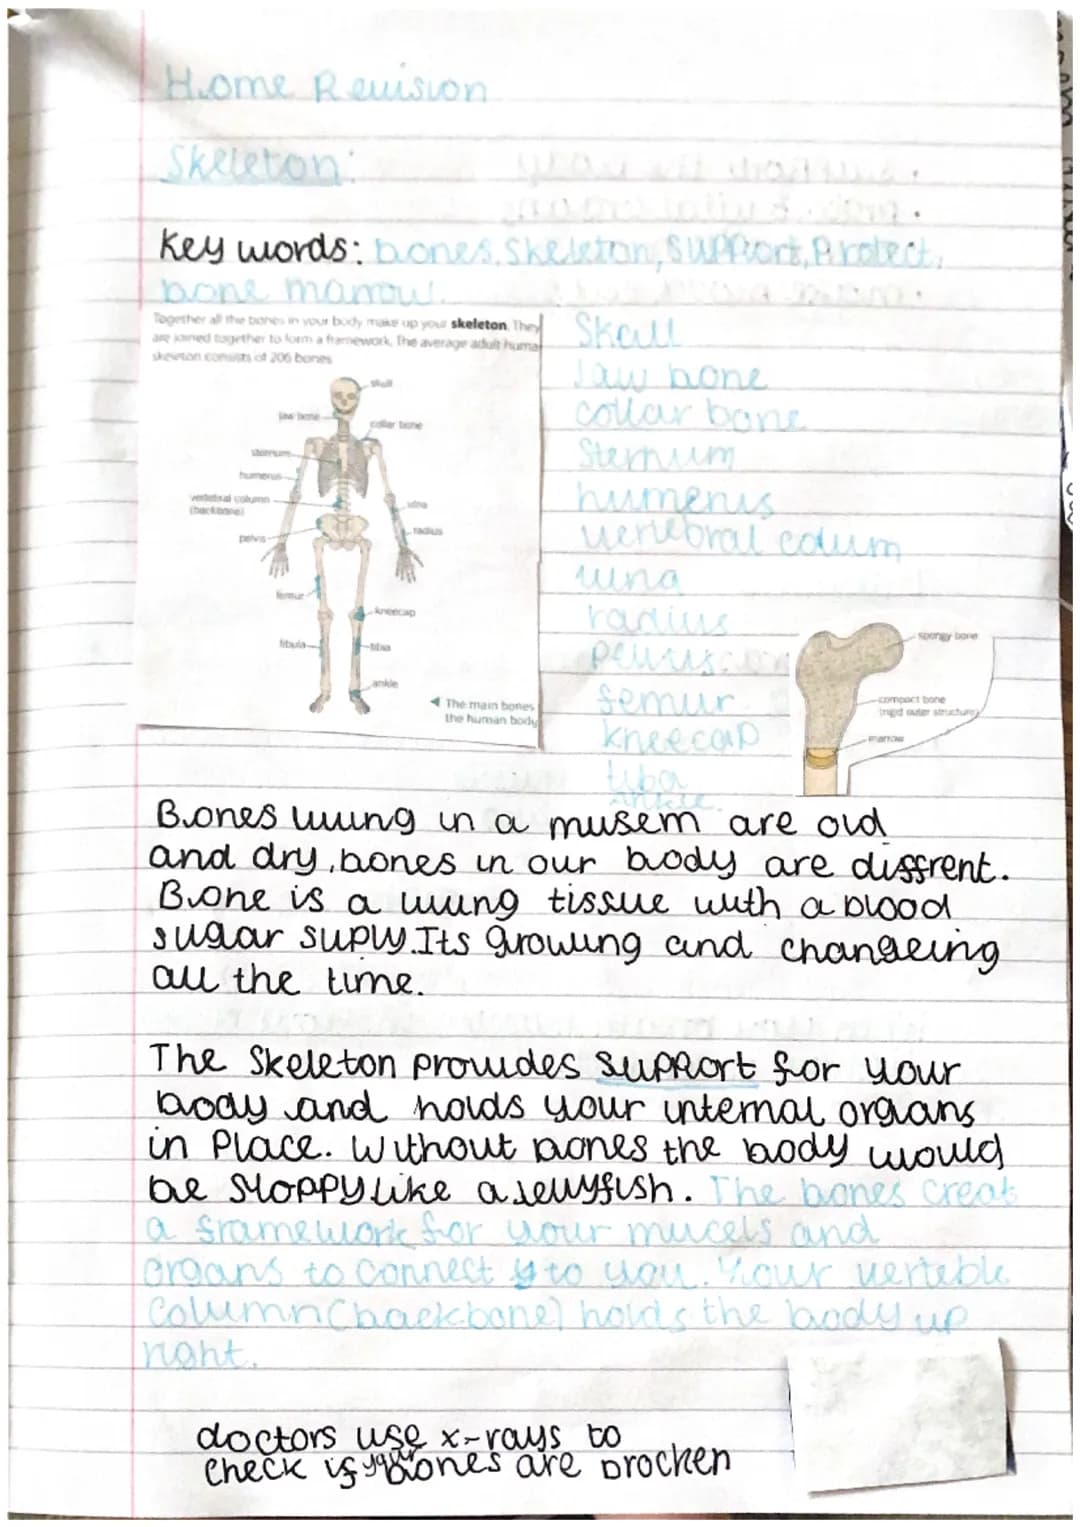 Home Revision
Skeleton:
Key words: bones, Skeleton, Support, Protect,
bone marrow.
Together all the bones in your body make up your skeleton. They
are joined together to form a framework. The average adult huma
skeleton consists of 206 bones
skull
jaw bone
collar bone
sternum
humerus
vertebral column
(backbone)
ulna
radius
pelvis
femur
kneecap
fibula
tibia
ankle
◄ The main bones
the human body
Skull
Jaw bone
collar bone
Sternum
humerus
vertebral colum
ulna
radius
pelvis
femur
kneecap
tiba
ankle.
spongy bone
compact bone
(rigid outer structure)
marrow
Bones living in a musem are old
and dry, bones in our body are diffrent.
Bone is a living tissue with a blood
sugar suply. Its growing and changeing
all the time.
The Skeleton provides Support for your
body and holds your internal organs
in Place. Without bones the body would
be sloppy like a jellyfish. The bones creat
a framework for your mucels and
organs to connect to you. Your verteble
Column (backbone) holds the body up
right.
doctors use x-rays to
check if your bones are brocken